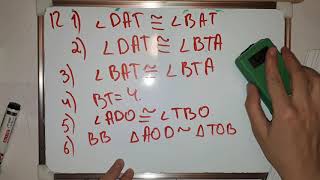 12 1) ∠DAT ≅ ∠BAT
2) ∠DAT ≅ ∠BTA
3) ∠BAT ≅ ∠BTA
4) BT = 4.
5) ∠ADO ≅ ∠TBO.
6) BB △AOD ~ △TOB